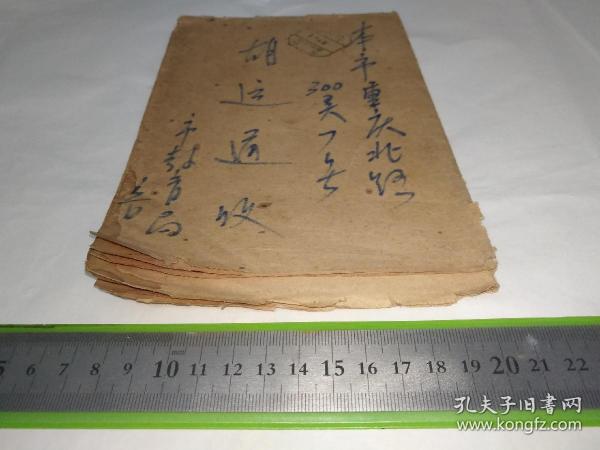 本市重庆北路
300弄7号
胡运道收
市教育局
mm
10 11 12 13 14 15 16 17 18 19 20 21 22
孔夫子旧书网
www.kongfz.com